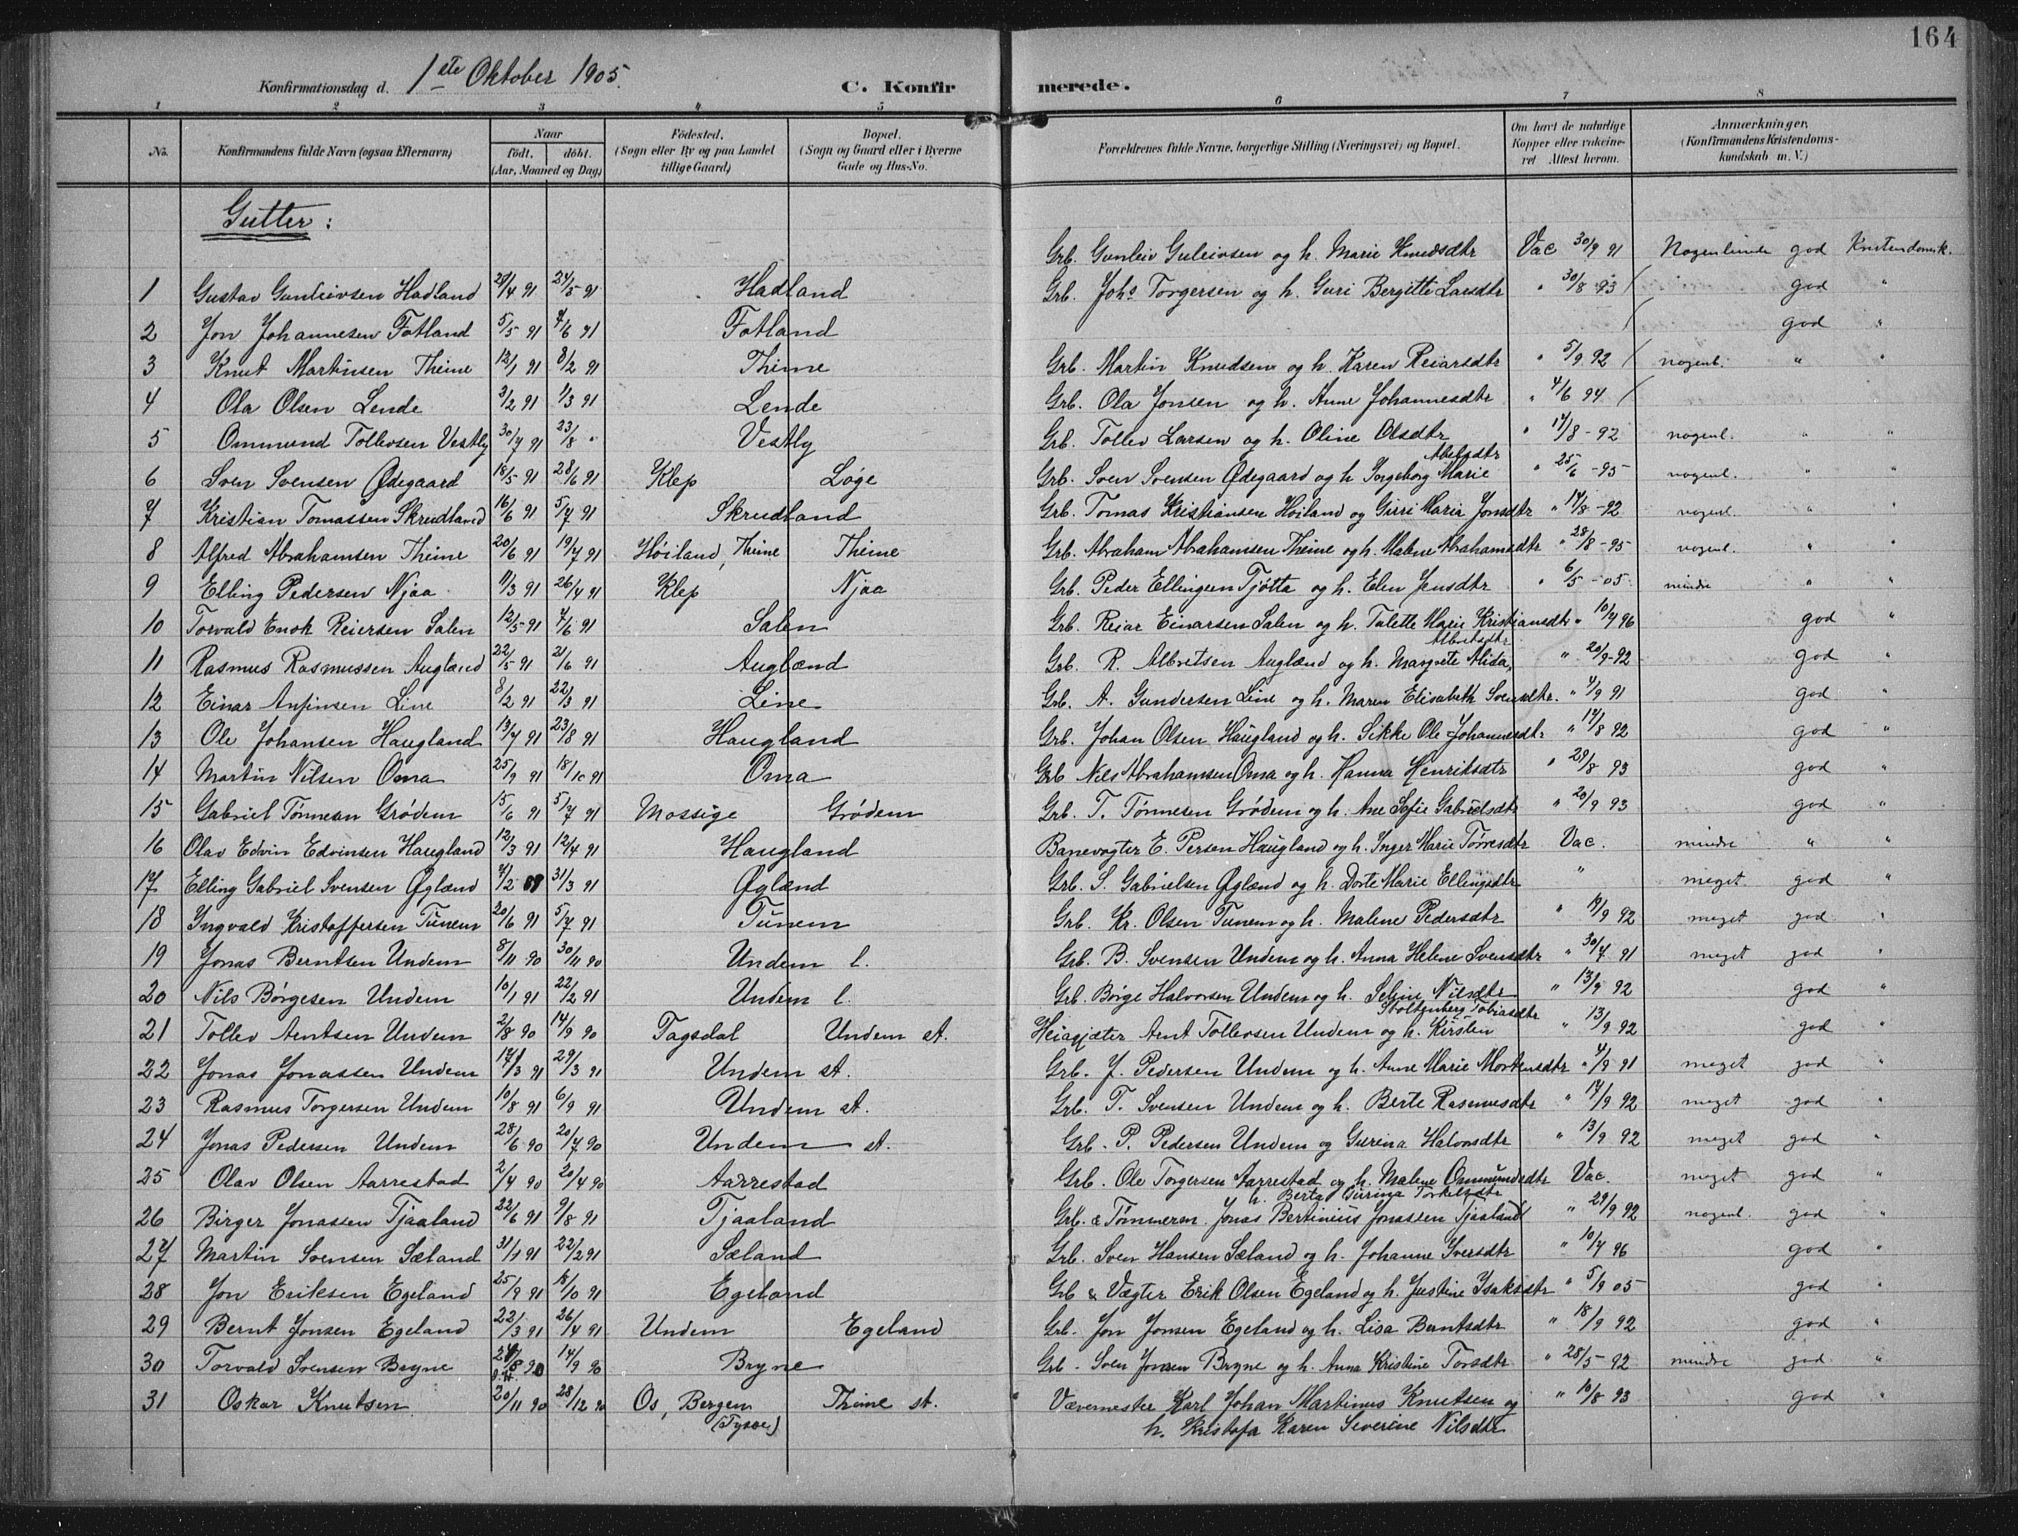 164
Konfirmationsdag d. 1ste Oktober 1905. C. Konfirmerede.
1 2 3 4 5 6 7 8
No. Konfirmandens fulde Navn (ogsaa Efternavn) Naar födt. döbt. (Aar, Maaned og Dag) Födested. (Sogn eller By og paa Landet tillige Gaard) Bopæl. (Sogn og Gaard eller i Byerne Gade og Hus-No. Forældrenes fulde Navne, borgerlige Stilling (Næringsvei) og Bopæl. Om havt de naturlige Kopper eller vakcineret Attest herom. Anmærkninger. (Konfirmandens Kristendomskundskab m. V.)
Gutter:
1 Gustav Gunleivsen Hadland 24/5 91 Hadland Grb. Gunleiv Guleivsen og h. Marie Knudsdtr Vac 30/9 91 Nogenlunde god Kristendomsk.
2 Jon Johannesen Fotland 5/5 91 7/6 91 Fotland Grb. Johs Torgersen og h. Guri Bergitte Larsdtr " 30/8 93 god "
3 Knut Martinsen Thime 12/1 91 8/2 91 Thime god "
4 Ola Olsen Lende 3/2 91 1/3 91 Lende Grb. Martin Knudsen og h. Karen Reiarsdtr " 5/9 92 nogenl. " "
5 Ommund Tollevsen Vestly 30/7 91 23/8 " Vestly Grb. Ola Jonsen og h. Anne Johannesdtr " 4/6 94
Grb. Tollev Larsen og h. Oline Olsdtr " 17/8 - 92 nogenl. " "
6 Sven Svensen Ødegaard 18/5 91 28/6 91 Klep Løge Grb. Sven Svensen Ødegaard og h. Ingeborg Marie Abelsdtr " 25/6 - 95 nogenl. " "
7 Kristian Tomassen Skrudland 16/6 91 5/7 91 Skrudland Grb. Tomas Kristiansen Høiland og Guri Maria Jonsdtr " 17/8 - 92 nogenl. " "
8 Alfred Abrahamsen Thime 20/6 91 19/7 91 Høiland, Thime Thime Grb. Abraham Abrahamsen Thime og h. Malene Abrahamsdtr " 28/8 - 95 nogenl. " "
9 Elling Pedersen Njaa 11/3 91 26/4 91 Klep Njaa Grb. Peder Ellingsen Tjøtta og h. Elen Jensdtr " 6/5 - 05 mindre " "
10 Torvald Enok Reiersen Salen 12/5 91 7/6 91 Salen Grb. Reiar Einarsen Salen og h. Talette Marie Kristiansdtr " 10/7 96 god "
11 Rasmus Rasmussen Auglænd 22/5 91 21/6 91 Auglænd Grb. R. Albretsen Auglænd og h. Margrete Alida Albretsdtr " 20/9 - 92 god "
12 Einar Anfinsen Line 8/2 91 22/3 91 Line Grb. A. Gundersen Line og h. Maren Elisabeth Svensdtr. " 4/9 91 god "
13 Ole Johansen Haugland 13/7 91 23/8 91 Haugland Grb. Johan Olsen Haugland og h. Sikke Ole Johannesdtr " 17/8 92 god "
14 Martin Nilsen Oma 25/9 91 18/10 91 Oma Grb Nils Abrahamsen Oma og h. Hanna Henriksdtr " 29/8 93 god "
15 Gabriel Tønnesen Grødem 15/6 91 5/7 91 Mossige Grødem Grb. T. Tønnesen Grødem og h. Ane Sofie Gabrielsdtr " 20/9 93 god "
16 Olav Edvin Edvinsen Haugland 12/3 91 12/4 91 Haugland Banevogter E. Persen Haugland og h. Inger Marie Tørresdtr Vac. mindre " "
17 Elling Gabriel Svensen Øglænd 31/3 91 Øglænd Grb. S. Gabrielsen Øglænd og h. Dorte Marie Ellingsdtr " meget god "
18 Ingvald Kristoffersen Tunem 20/6 91 5/7 91 Tunem Grb. Kr. Olsen Tunem og h. Malene Pedersdtr " 19/9 92 meget god "
19 Jonas Berntsen Undem 8/11 90 30/11 90 Undem l. Grb. B. Svensen Undem og h. Anna Helene Svensdtr " 30/7 91 meget god "
20 Nils Børgesen Undem 10/1 91 22/2 91 Undem l. Grb. Børge Halvorsen Undem og h. Seline Nilsdtr " 13/9 92 god "
21 Tollev Arntsen Undem 2/8 90 14/9 90 Tagsdal Undem st. Heiagjæter Arnt Tollevsen Undem og h. Kirsten Stoltenberg Tobiasdtr " 13/9 92 god "
22 Jonas Jonassen Undem 17/3 91 29/3 91 Undem st. Grb. J. Pedersen Undem og h. Anne Marie Mortensdtr " 4/9 91 meget god "
23 Rasmus Torgersen Undem 10/8 91 6/9 91 Undem st. Grb. T. Svensen Undem og h. Berte Rasmusdtr " 17/9 92 meget god "
24 Jonas Pedersen Undem 28/6 90 20/7 90 Undem st. Grb. P. Pedersen Undem og Gurina Halvorsdtr " 13/9 92 meget god "
25 Olav Olsen Aarrestad 2/4 90 20/4 90 Aarrestad Grb. Ole Torgersen Aarrestad og h. Malene Ommundsdtr Vac. meget god "
26 Birger Jonassen Tjaaland 22/6 91 9/8 91 Tjaaland Grb. & Tømmerm. Jonas Bertinius Jonassen Tjaaland h. Berta Gurina Torkelsdtr " 29/9 92 nogenl. god "
27 Martin Svensen Sæland 31/1 91 22/2 91 Sæland Grb. Sven Hansen Sæland og h. Johanne Sversdtr " 10/7 96 god "
28 Jon Eriksen Egeland 25/9 91 18/10 91 Egeland Grb & Vægter Erik Olsen Egeland og h. Justine Isaksdtr " 5/9 05 god "
29 Bernt Jonsen Egeland 22/3 91 26/4 91 Undem Egeland Grb. Jon Jonsen Egeland og h. Lisa Berntsdtr " 18/9 92 god "
30 Torvald Svensen Bryne 14/9 90 Bryne Grb. Sven Jonsen Bryne og h. Anna Kristine Torsdtr " 28/5 - 92 mindre god "
31 Oskar Knutsen 20/11 90 28/12 90 Os, Bergen (Tysse) Thime st. Vævemester Karl Johan Martinus Knutsen og " 10/8 93 god "
h. Kristofa Karen Severine Nilsdtr